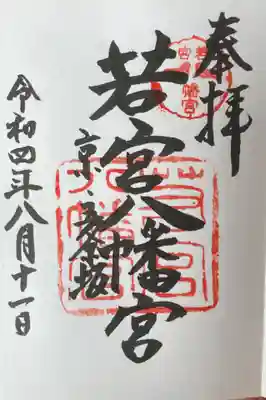 奉拝
若宮八幡宮
京、五条坂
令和四年八月十一日